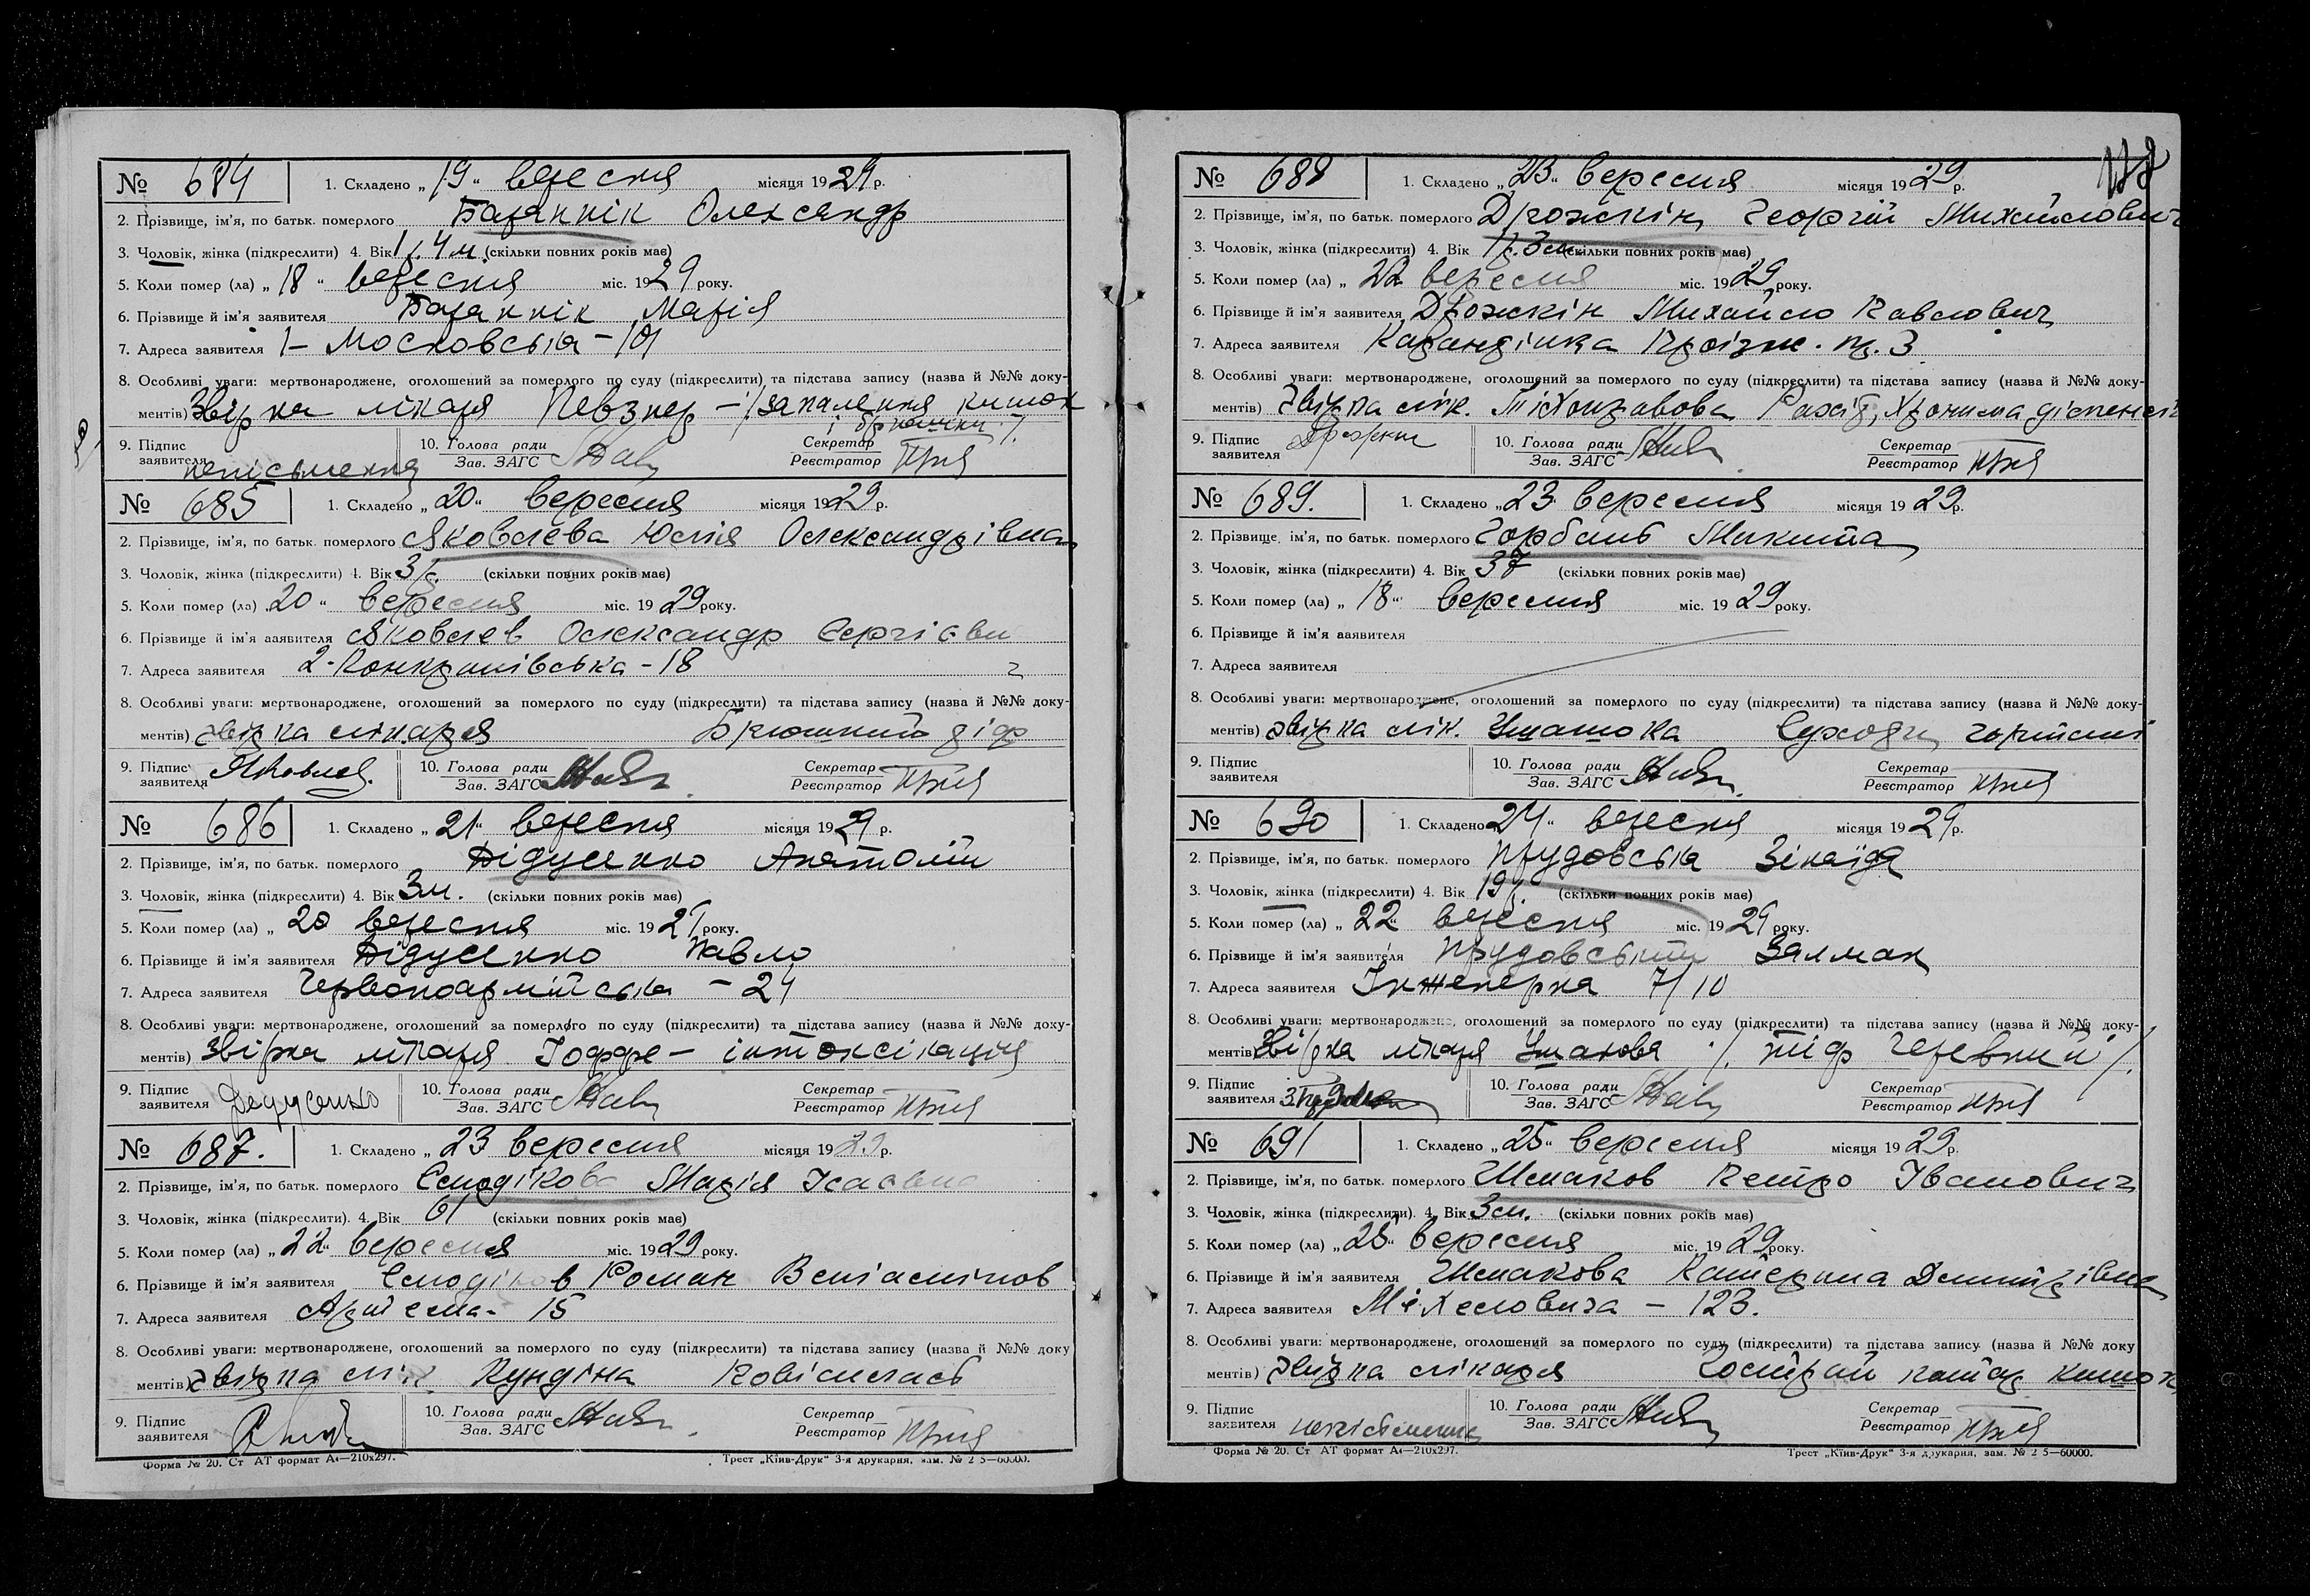 № 684 1. Складено „19“ вересня місяця 1929 р.
2. Прізвище, ім’я, по батьк. померлого Баранник Олександр
3. Чоловік, жінка (підкреслити) 4. Вік 1 р. 4 м. (скільки повних років має)
5. Коли помер (ла) „18“ вересня міс. 1929 року.
6. Прізвище й ім’я заявителя Баранник Марія
7. Адреса заявителя 1– Московська – 101
8. Особливі уваги: мертвонароджене, оголошений за померлого по суду (підкреслити) та підстава запису (назва й №№ доку-
ментів) Звірка лікаря Певзнер – /запалення кишок
9. Підпис заявителя 10. Голова ради Зав. ЗАГС Секретар Реєстратор
№ 685 1. Складено „20“ вересня місяця 1929 р.
2. Прізвище, ім’я, по батьк. померлого Яковлева Юлія Олександрівна
3. Чоловік, жінка (підкреслити) 4. Вік 3 р. (скільки повних років має)
5. Коли помер (ла) „20“ вересня міс. 1929 року.
6. Прізвище й ім’я заявителя Яковлев Олександр Сергієви
7. Адреса заявителя 2- -18 ч
8. Особливі уваги: мертвонароджене, оголошений за померлого по суду (підкреслити) та підстава запису (назва й №№ доку-
ментів) звірка лікаря Брюшний тіф
9. Підпис заявителя Яковлев. 10. Голова ради Зав. ЗАГС Секретар Реєстратор
№ 686 1. Складено „21“ вересня місяця 1929 р.
2. Прізвище, ім’я, по батьк. померлого Дідусенко Анатолій
3. Чоловік, жінка (підкреслити) 4. Вік 3м. (скільки повних років має)
5. Коли помер (ла) „20 вересня міс. 1929 року.
6. Прізвище й ім’я заявителя Дідусенко Павло
7. Адреса заявителя Червоноармійська – 24
8. Особливі уваги: мертвонароджене, оголошений за померлого по суду (підкреслити) та підстава запису (назва й №№ доку-
ментів) Звірка лікаря Іоффе – інтоксікація
9. Підпис заявителя Дедусенко 10. Голова ради Зав. ЗАГС Секретар Реєстратор
№ 687. 1. Складено „23 вересня місяця 1929 р.
2. Прізвище, ім’я, по батьк. померлого Марія Ісаевна
3. Чоловік, жінка (підкреслити). 4. Вік 61 (скільки повних років має)
5. Коли помер (ла) „22“ вересня міс. 1929 року.
6. Прізвище й ім’я заявителя Роман Веніамінов
7. Адреса заявителя Артема- 15
8. Особливі уваги: мертвонароджене, оголошений за померлого по суду (підкреслити) та підстава запису (назва й №№ доку
ментів) звірка лік. Кундіна
9. Підпис заявителя 10. Голова ради Зав. ЗАГС Секретар Реєстратор
Форма № 20. Ст АТ формат А4—210х297. Трест „Київ-Друк“ 3-я друкарня, зам. № 2 5—60000.
№ 688 1. Складено „23“ вересня місяця 1929 р.
2. Прізвище, ім’я, по батьк. померлого Дрожжін Георгій Михайлович
3. Чоловік, жінка (підкреслити) 4. Вік 1 р. 3 м. (скільки повних років має)
5. Коли помер (ла) „22 вересня міс. 1929 року.
6. Прізвище й ім’я заявителя Дрожжін Михайло Павлович
7. Адреса заявителя 3
8. Особливі уваги: мертвонароджене, оголошений за померлого по суду (підкреслити) та підстава запису (назва й №№ доку-
ментів) звірка лік. Тіхонравова Рахіт,
9. Підпис заявителя 10. Голова ради Зав. ЗАГС Секретар Реєстратор
№ 689. 1. Складено „23 вересня місяця 1929 р.
2. Прізвище, ім’я, по батьк. померлого Горбань Микита
3. Чоловік, жінка (підкреслити) 4. Вік 37 (скільки повних років має)
5. Коли помер (ла) „18“ вересня міс. 1929 року.
6. Прізвище й ім’я заявителя
7. Адреса заявителя
8. Особливі уваги: мертвонароджене, оголошений за померлого по суду (підкреслити) та підстава запису (назва й №№ доку-
ментів) звірка лік. Сухоти
9. Підпис заявителя 10. Голова ради Зав. ЗАГС Секретар Реєстратор
№ 690 1. Складено „24“ вересня місяця 1929 р.
2. Прізвище, ім’я, по батьк. померлого Прудовська Зінаїда
3. Чоловік, жінка (підкреслити) 4. Вік 19 р. (скільки повних років має)
5. Коли помер (ла) „22“ вересня міс. 1929 року.
6. Прізвище й ім’я заявителя Прудовський Залман
7. Адреса заявителя Інженерна 7/10
8. Особливі уваги: мертвонароджене, оголошений за померлого по суду (підкреслити) та підстава запису (назва й №№ доку-
ментів) Звірка лікаря Ушакова /. тіф черевний /.
9. Підпис заявителя 10. Голова ради Зав. ЗАГС Секретар Реєстратор
№ 691 1. Складено „25“ вересня місяця 1929 р.
2. Прізвище, ім’я, по батьк. померлого Шмаков Петро Іванович
3. Чоловік, жінка (підкреслити). 4. Вік 3м. (скільки повних років має)
5. Коли помер (ла) „25“ вересня міс. 1929 року.
6. Прізвище й ім’я заявителя Шмакова Катерина Дмитрівна
7. Адреса заявителя Міхельовича – 123.
8. Особливі уваги: мертвонароджене, оголошений за померлого по суду (підкреслити) та підстава запису (назва й №№ доку
ментів) звірка лікаря Гострий катар кишок
9. Підпис заявителя неписьменна 10. Голова ради Зав. ЗАГС Секретар Реєстратор
Форма № 20. Ст АТ формат А4—210х297. Трест „Київ-Друк“ 3-я друкарня, зам. № 2 5—60000.